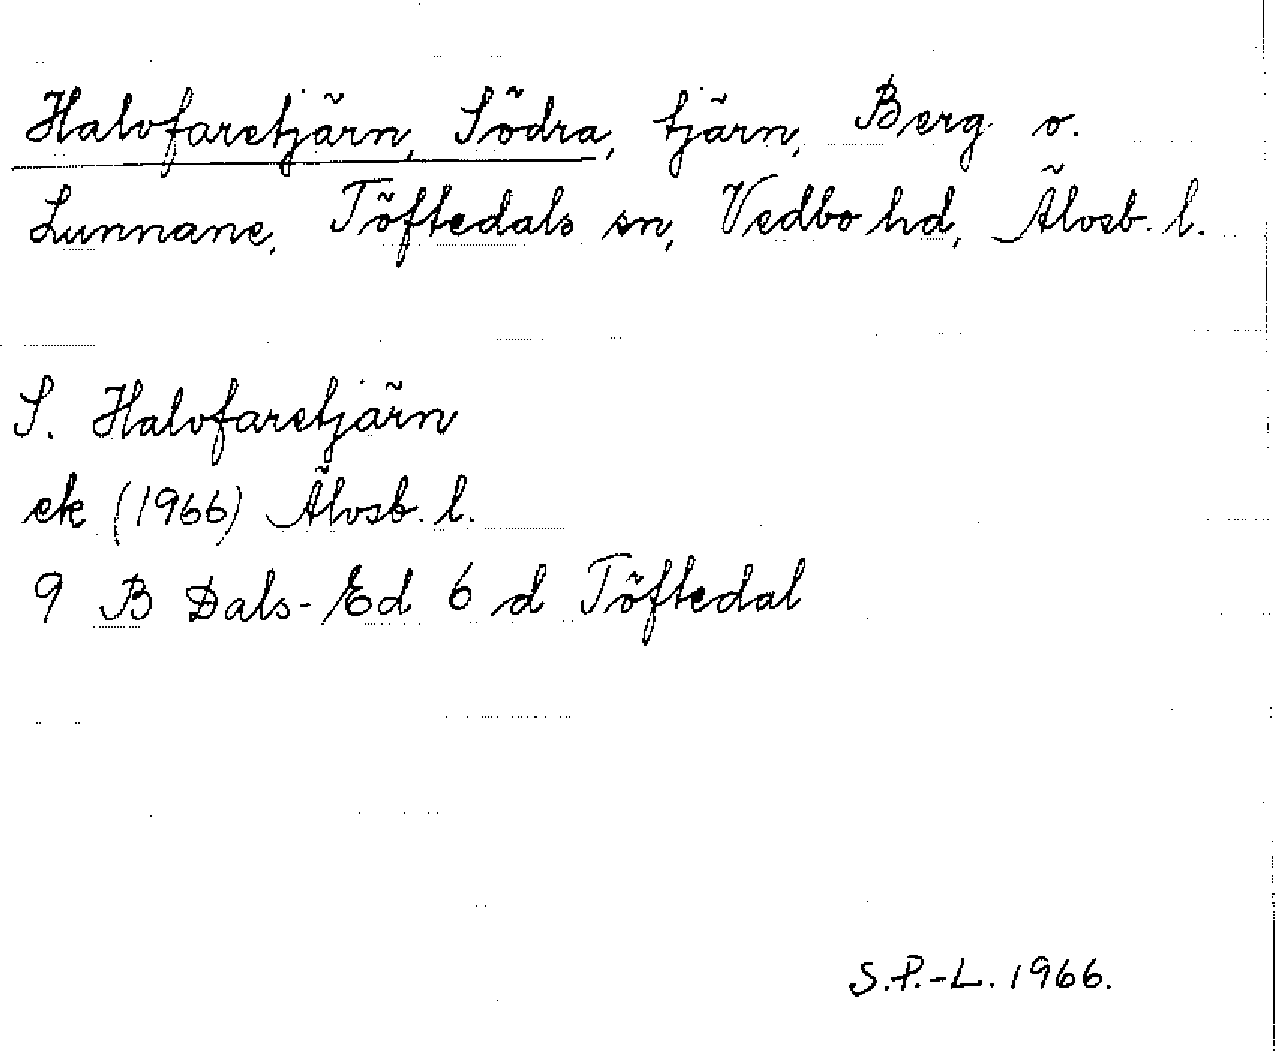 Halvfaretjärn, Södra, tjärn, Berg o.
Lunnane, Töftedals sn, Vedbo hd, Älvsb. l.
S. Halvfaretjärn
ek (1966) Älvsb. l.
9 B Dals-Ed 6 d Töftedal
S.P.-L. 1966.